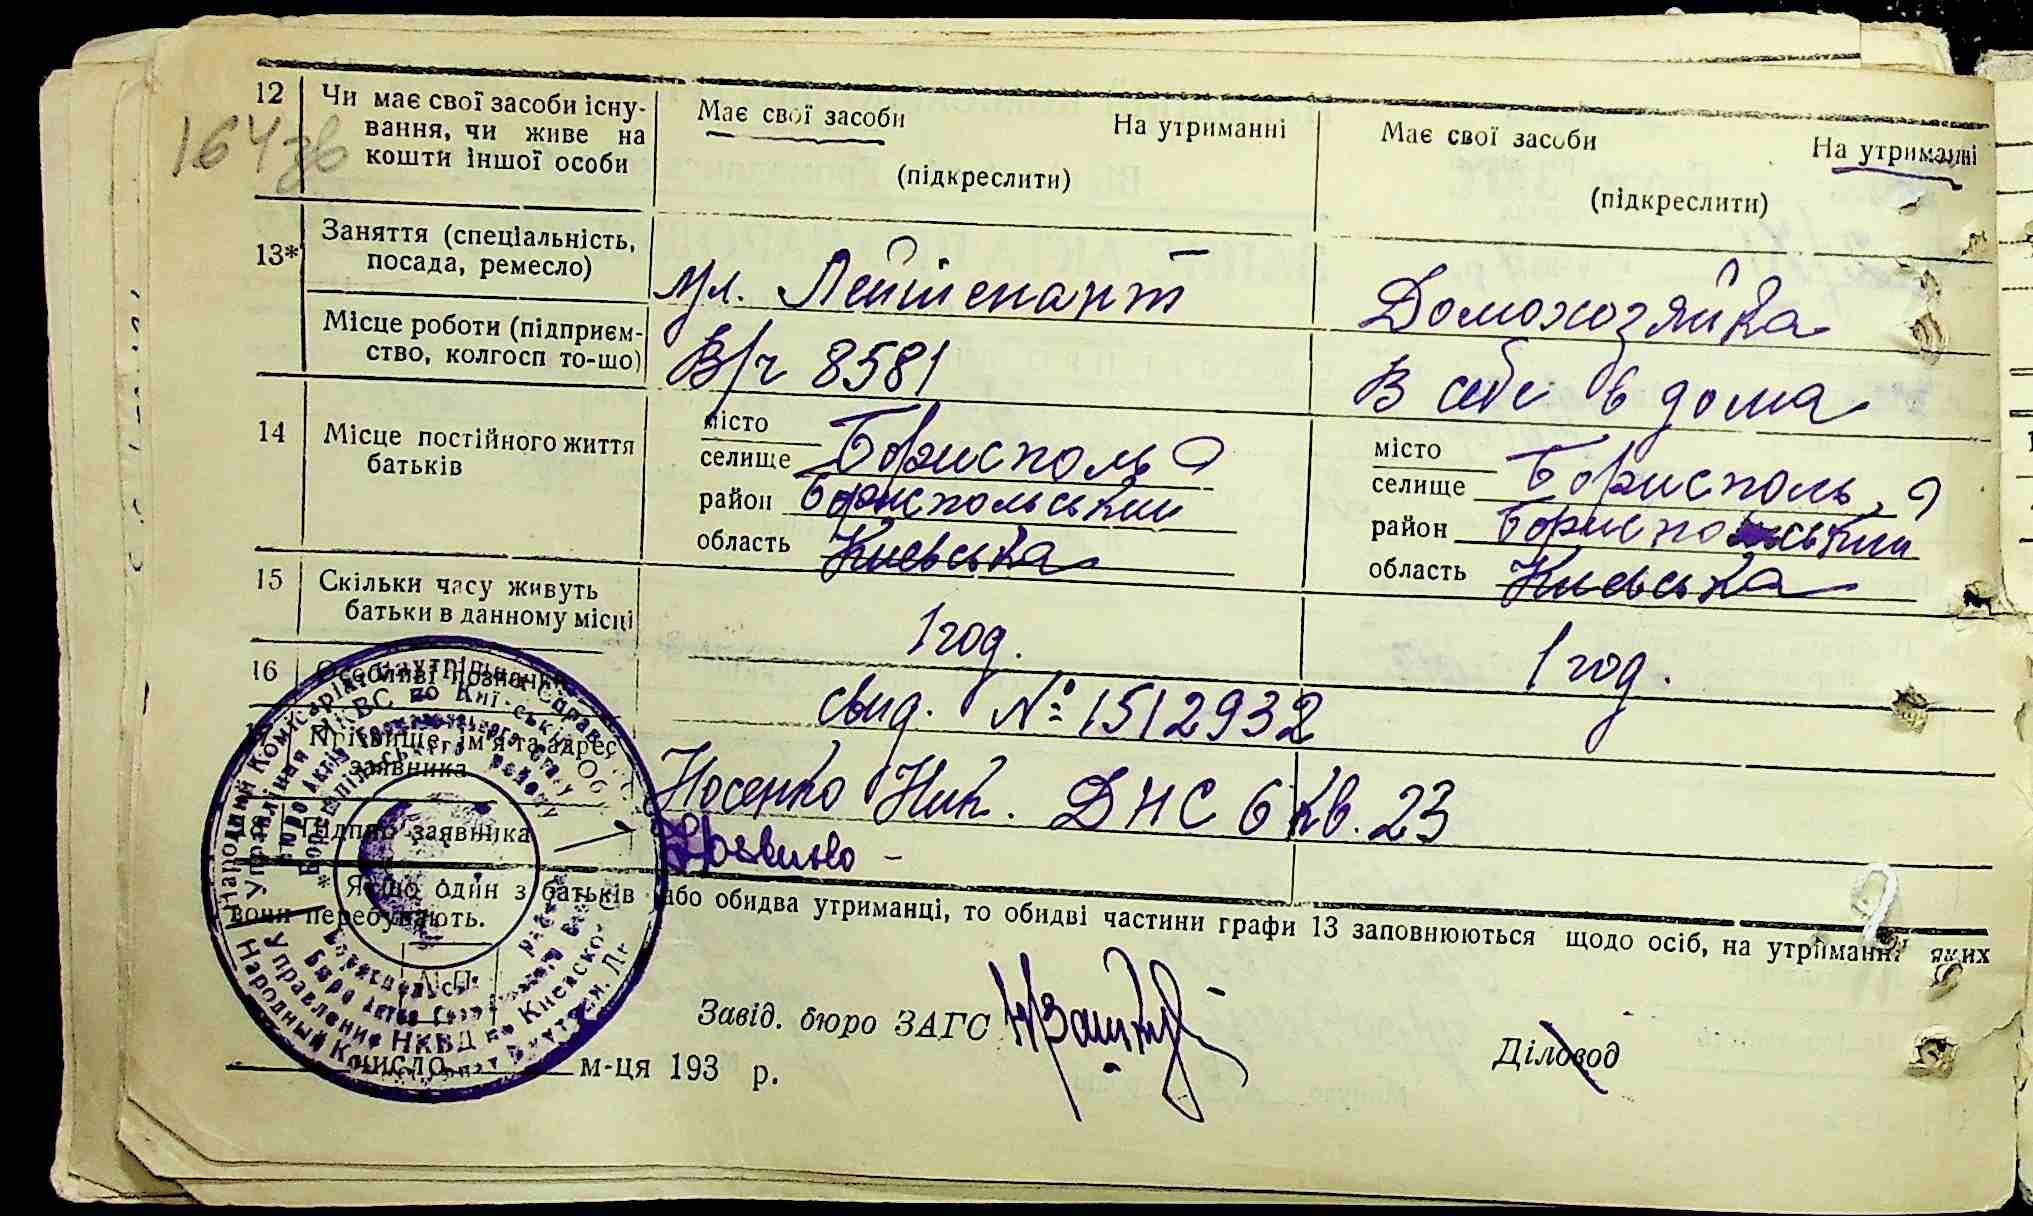 164зв
12 Чи має свої засоби існу-
вання, чи живе на
кошти іншої особи
Має свої засоби На утриманні
(підкреслити)
Має свої засоби На утриманні
(підкреслити)
13* Заняття (спеціальність,
посада, ремесло)
мл. Лейтенант
Домохозяйка
Місце роботи (підприєм-
ство, колгосп то-що)
В/ч 8581
В себе в дома
14 Місце постійного життя
батьків
місто
селище Борисполь
район Бориспольський
область Киевська
місто
селище Борисполь
район Бориспольський
область Киевська
15 Скільки часу живуть
батьки в данному місці
1 год.
1 год.
16 Особливі позначки
свид. № 1512932
Прізвище, ім'я та адрес
заявника
Носенко Ник. ДНС 6 кв. 23
18 Підпис заявника
Якщо один з батьків або обидва утриманці, то обидві частини графи 13 заповнюються щодо осіб, на утриманні яких
вони перебувають.
М.П.
Завід. бюро ЗАГС
Діловод
число м-ця 193 р.
Народний Комісаріат Внутрішніх Справ
Управління НКВС по Київській Обл.
Бюро Актів Громадянського Стану
Бориспільського району
Управление НКВД по Киевской